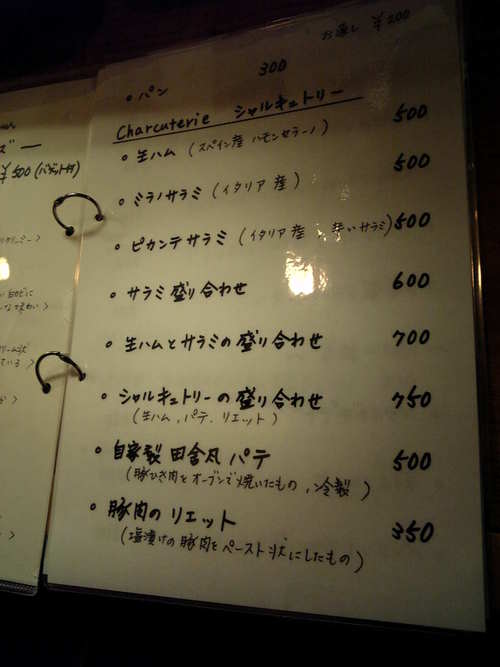 お通し ¥200
・パン 300
Charcuterie シャルキュトリー
・生ハム (スペイン産 ハモンセラーノ) 500
・ミラノサラミ (イタリア産) 500
・ピカンテサラミ (イタリア産 辛いサラミ) 500
・サラミ盛り合わせ 600
・生ハムとサラミの盛り合わせ 700
・シャルキュトリーの盛り合わせ 750
(生ハム、パテ、リエット)
・自家製 田舎風 パテ 500
(豚ひき肉をオーブンで焼いたもの、冷製)
・豚肉のリエット 350
(塩漬けの豚肉をペースト状にしたもの)
ズー
¥500 (バゲット付)